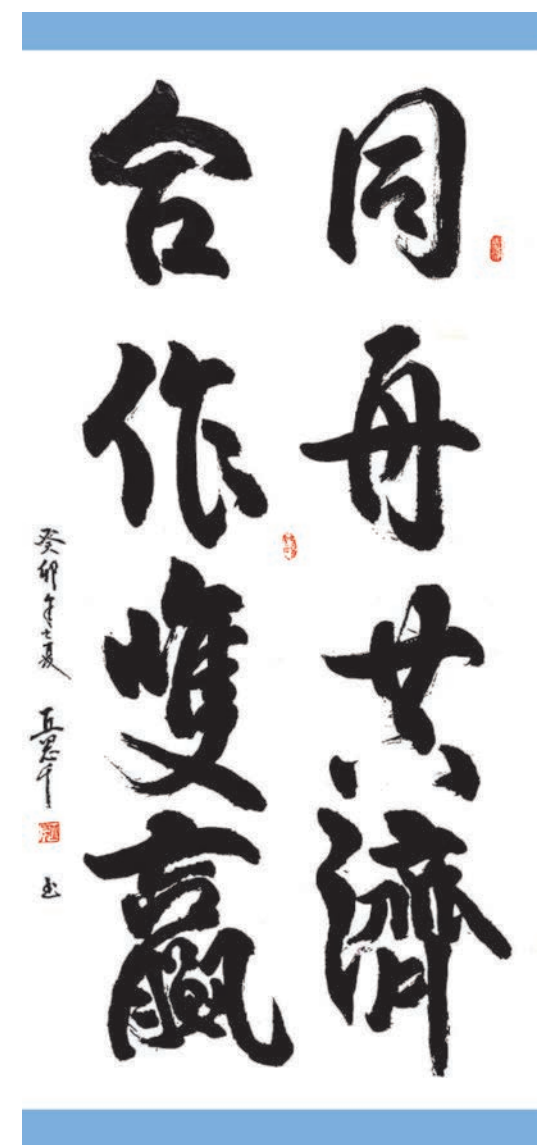 同舟共濟
合作雙贏
癸卯年之夏